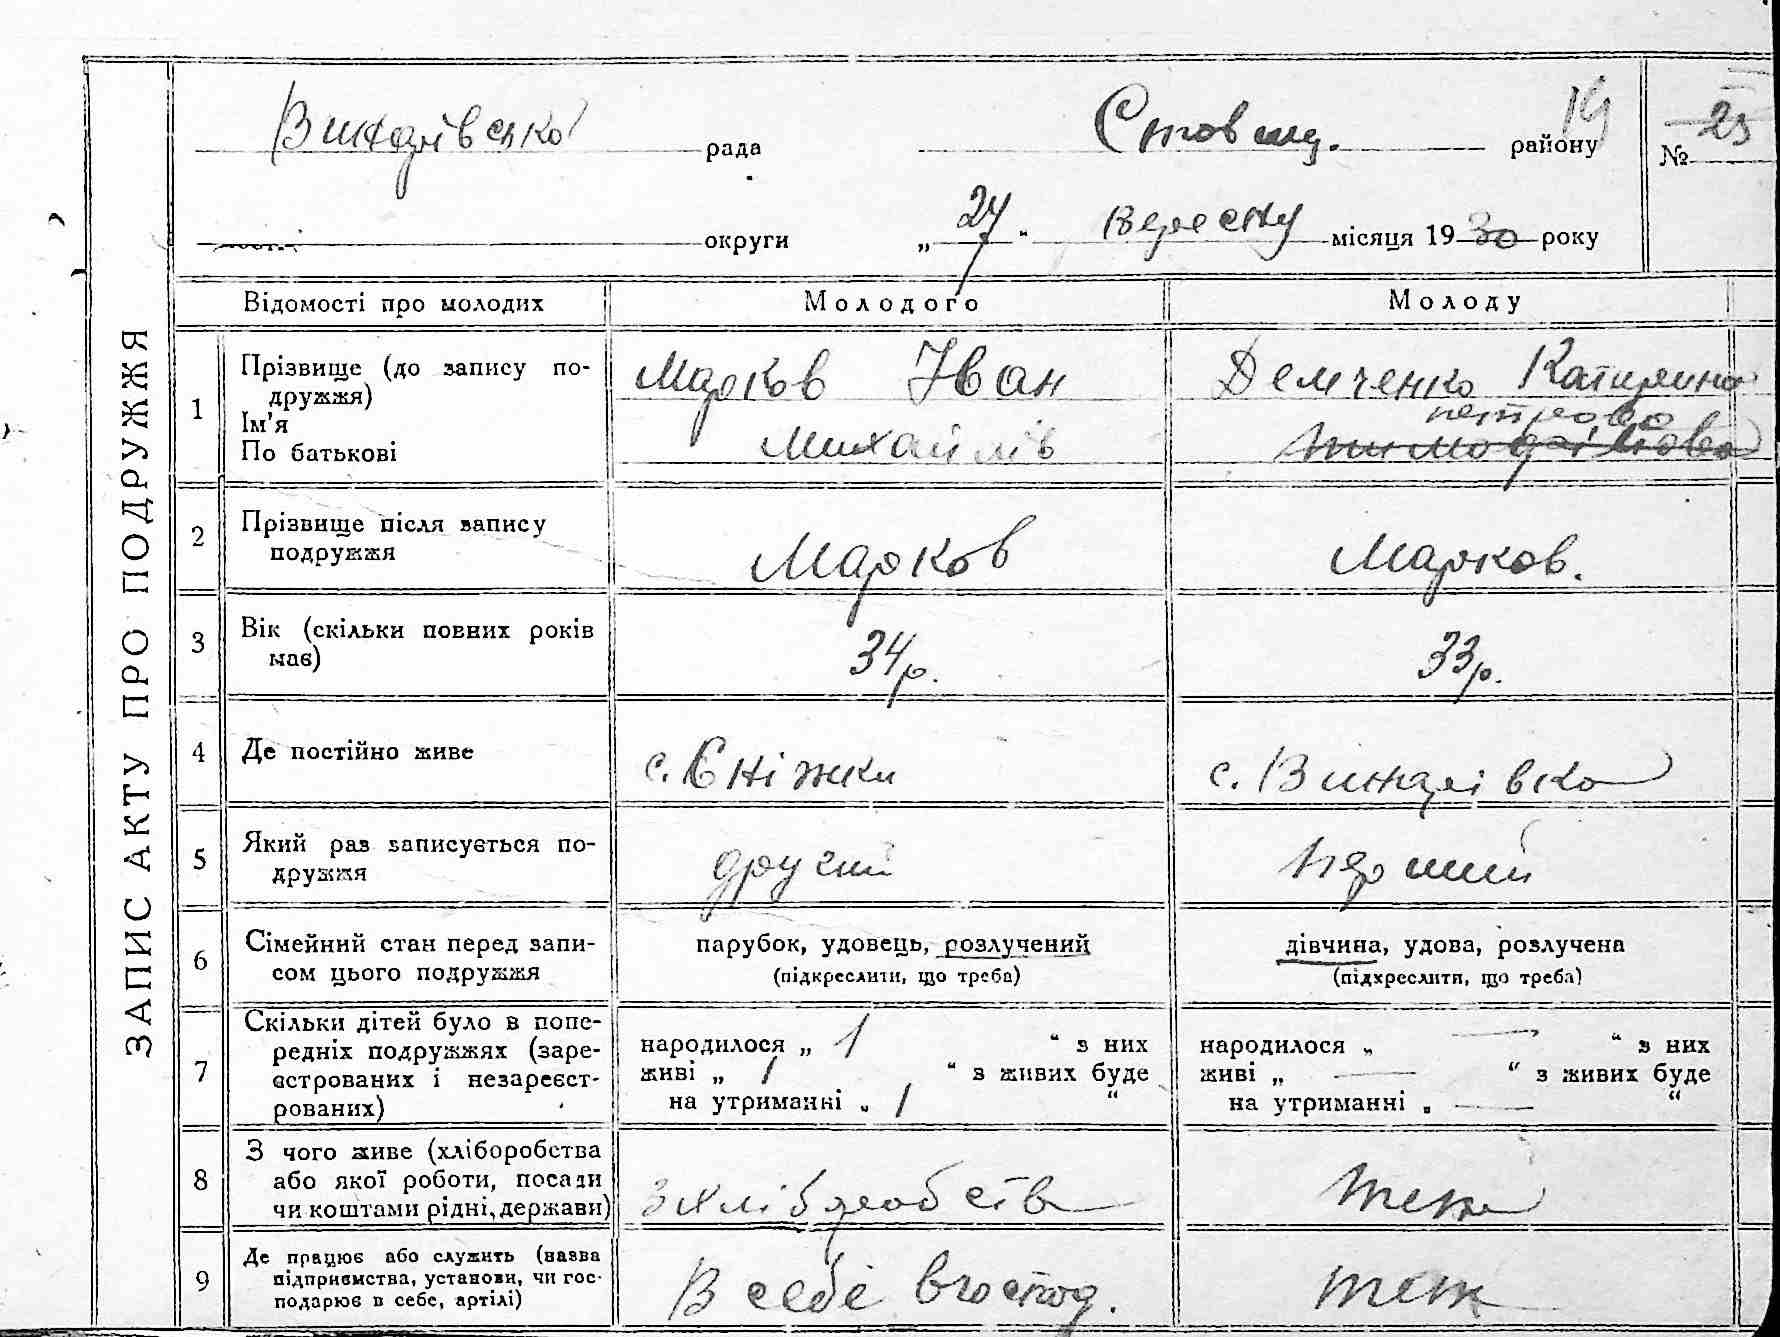 19
Вишарівсько рада Ставищ. району № 23
округи „27“ вересня місяця 1930 року
ЗАПИС АКТУ ПРО ПОДРУЖЖЯ
Відомості про молодих Молодого Молоду
1 Прізвище (до запису подружжя) Марков Іван Демченко Катирина
Ім'я петрово
По батькові Михайлів
2 Прізвище після запису подружжя Марков Марков.
3 Вік (скільки повних років має) 34р. 33р.
4 Де постійно живе с. Сніжки с.
5 Який раз записується подружжя другий перший
6 Сімейний стан перед записом цього подружжя парубок, удовець, розлучений дівчина, удова, розлучена
(підкреслити, що треба) (підкреслити, що треба)
7 Скільки дітей було в попередніх подружжях (зареєстрованих і незареєстрованих) народилося „ 1 “ з них народилося „ — “ з них
живі „ 1 “ з живих буде живі „ — “ з живих буде
на утриманні „ 1 “ на утриманні „ — “
8 З чого живе (хліборобства або якої роботи, посади чи коштами рідні, держави) з хліборобств теж
9 Де працює або служить (назва підприємства, установи, чи господарює в себе, артілі) В себе в господ. теж